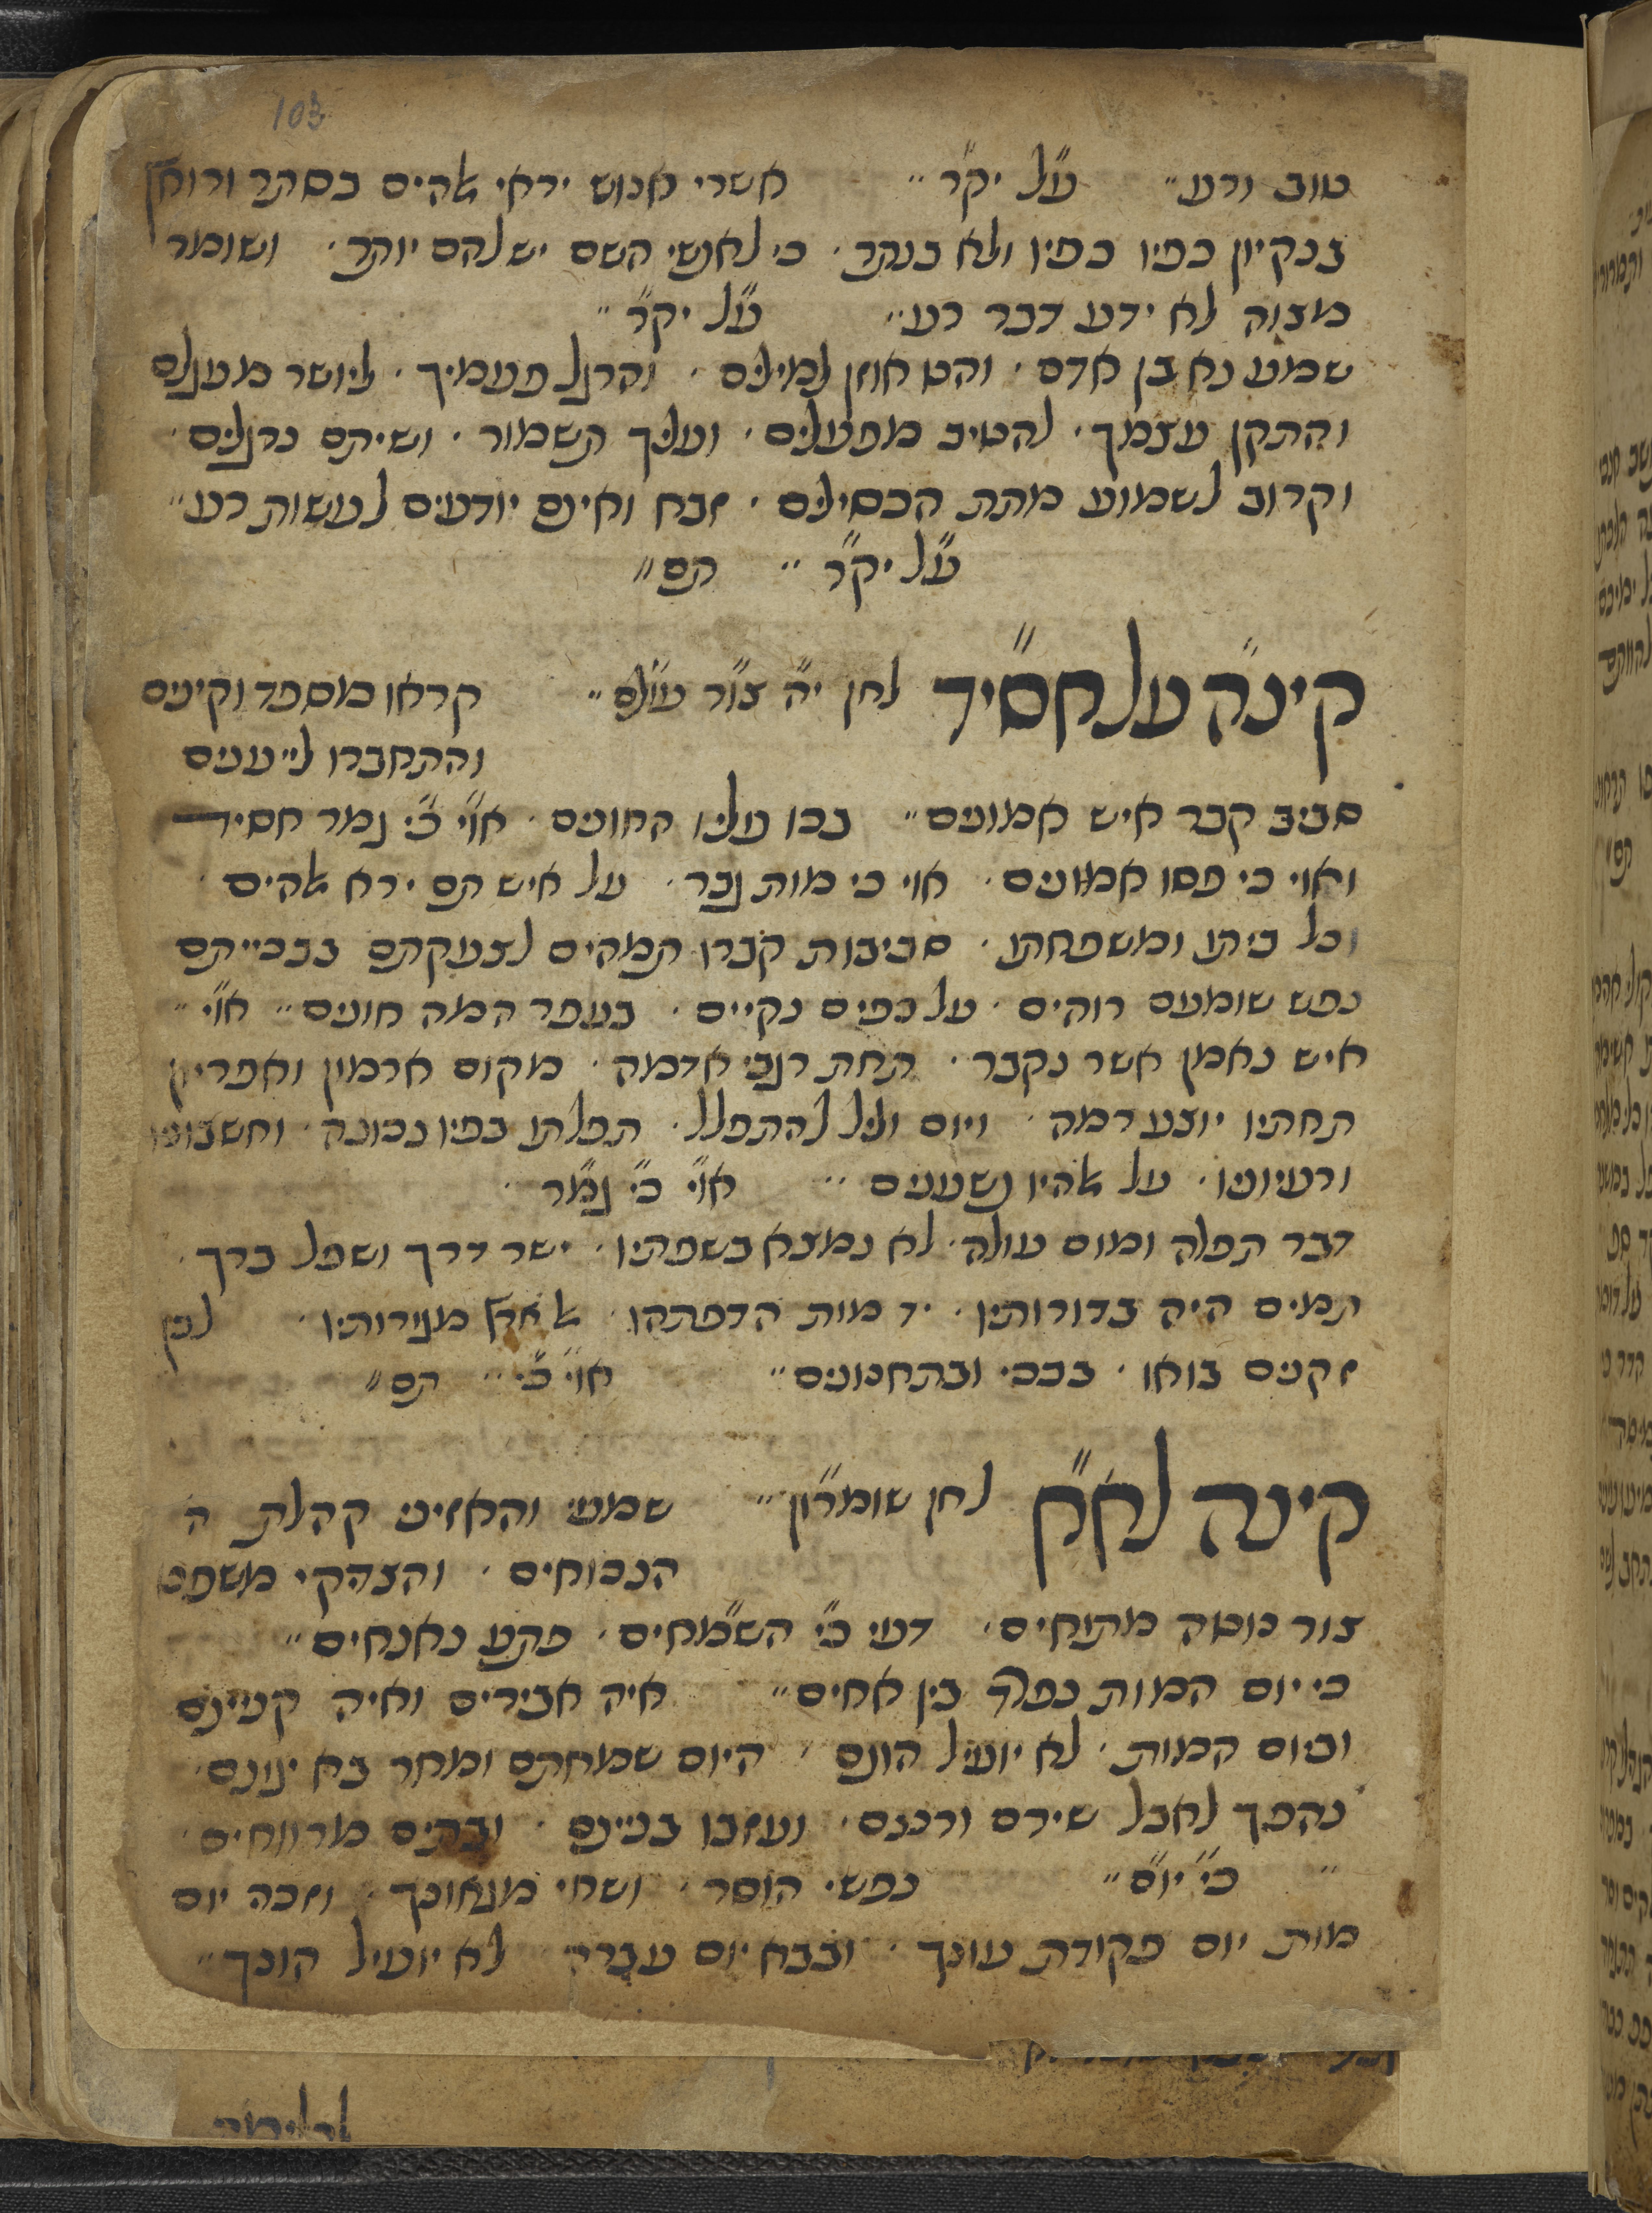 103
טוב ורע״ ע״ל יק״ר״ אשרי אנוש ירא׳ אהים בסתר ורואץ
בנקיון כפיו כפיו ולא בנתר · כי לאנשי השם יש להם יותר · ושומר
מצוה לא ידע דבר רע״ ע״ל יק״ר״
שמע נא בן אדם · והט אוזן למילים · והרגל פעמיך · ליושר מעגלם
והתקן עצמך · להטיב מפעלים · ועליך תשמור · ושיתם כרגלים ·
וקרוב לשמוע מתת הכסילים · זבח ואינם יודעים לעשות רע״
ע״ל יק״ר״ תם״
קינה על חסיד לחן י״ה צו״ר עול״ם״ קראו מספד וקינים
והתחברו ל׳׳ענים
סביב קבר איש אמונים״ בכו עליו החונים · או״י כ״י נגמר חסיד
ואוי כי פסו אמונים · אוי כי מות גבר · על איש תם ירא אהים ·
וכל ביתו ומשפחתו · סביבות קברו תמהים לצעקתם בבכייתם
נפש שומעם רוהים · על כפים נקיים · בעפר המה חונים״ או״י״
איש נאמן אשר נקבר · תחת רגבי אדמה · מקום ארמון ואפריון
תחתיו יוצע רמה · ויום וליל להתפלל · תפלתו בפיו נכונה · וחשבוניו
ורעיוניו · על אהיו נשענים ·· או״י כ״י נגמ״ר ·
דבר תפלה ומום עולה · לא נמצא בשפתיו · ישר דרך ושפל ברך ·
תמים היה בדורותיו · יד מות הדפתהו · לארץ מגירותיו · לכן
זקנים בואו · בבכי ובתחנונים״ או״י כ״י״ תם״
קינה לא״ח לחן שומר״ון״ שמעי והאזיני קהלת ה
הנכוחים · והצדקי משפט
צור נוטה מתוחים · דעי כ״י השמ״חים · פתע נאנחים״
כי יום המות נפלה בין אחים״ איה אבירים ואיה קנינם
וביום המות · לא יועיל הונם · היום שמחתם ומחר בא יגונם ·
נהפך לאבל שירם ורננם · ועזבו בנינם · ובתים מרווחים ·
״ כ״י יו״ם״ נפשי הוסר · ושחי מגאונך · וזכה יום
מות יום פקודת עונך · ובבא יום עברה לא יועיל הונך״